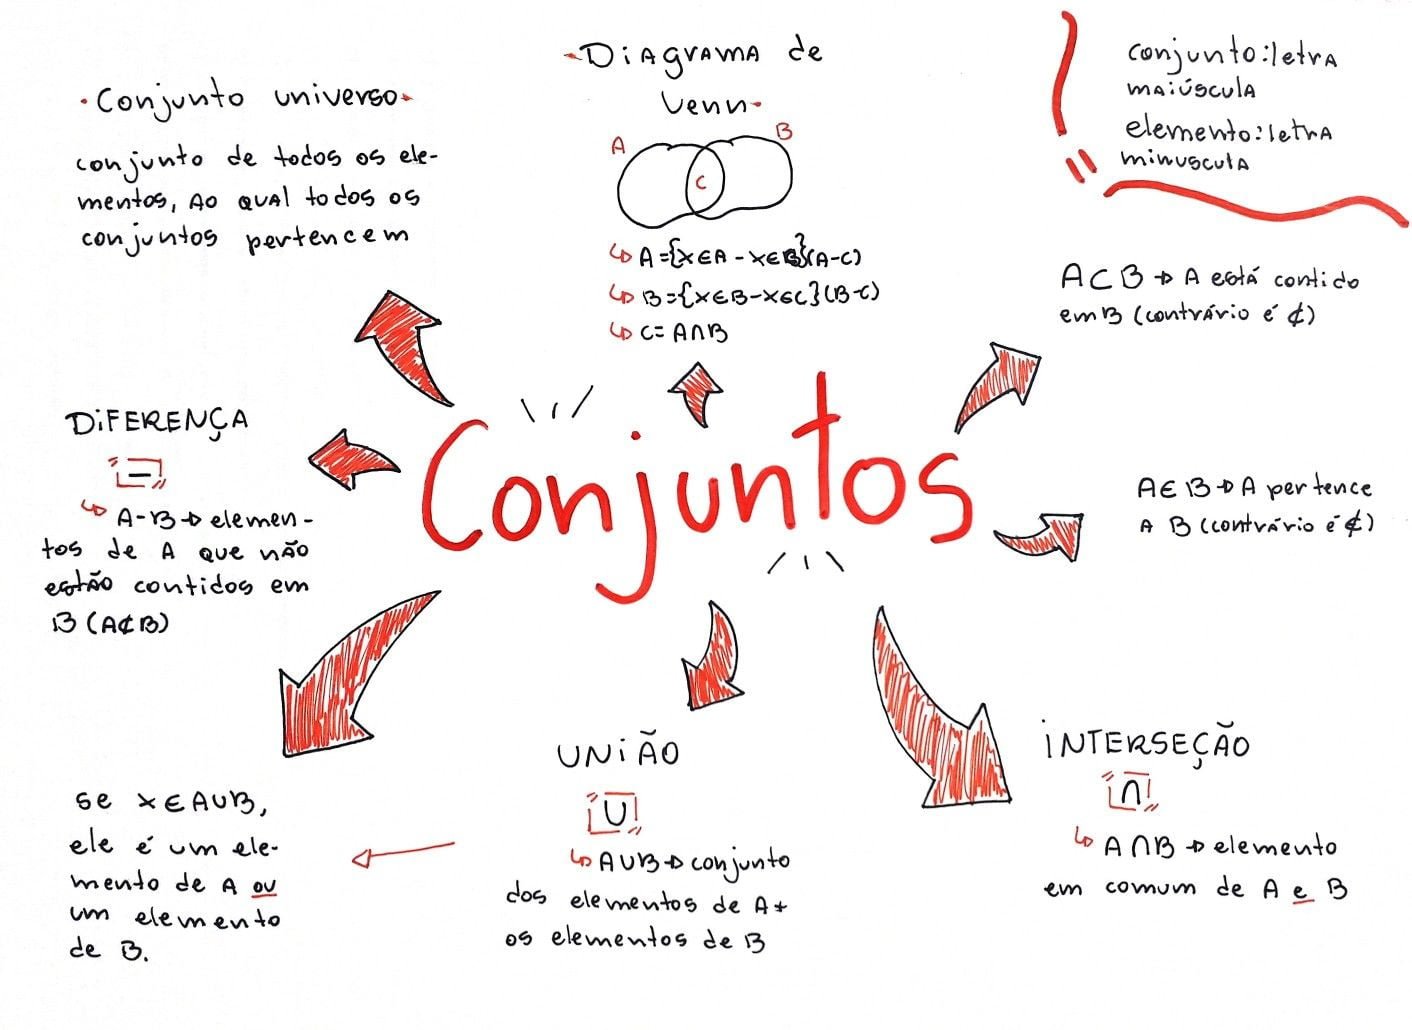 • Conjunto universo •
conjunto de todos os ele-
mentos, ao qual todos os
conjuntos pertencem
• Diagrama de
Venn •
A
B
C
↳ A={x∈A - x∈B}(A-C)
↳ B={x∈B-x∈C}(B-C)
↳ C= A∩B
conjunto:letra
maiúscula
elemento:letra
minuscula
!!
A⊂B → A está contido
em B (contrário é ⊄)
DiFERENÇA
-
↳ A-B → elemen-
tos de A que não
estão contidos em
B (A⊄B)
Conjuntos
A∈B → A pertence
A B (contrário é ∉)
UNiÃO
∪
↳ A∪B → conjunto
dos elementos de A +
os elementos de B
se x∈A∪B,
ele é um ele-
mento de A ou
um elemento
de B.
iNTERSEÇÃO
∩
↳ A∩B → elemento
em comum de A e B